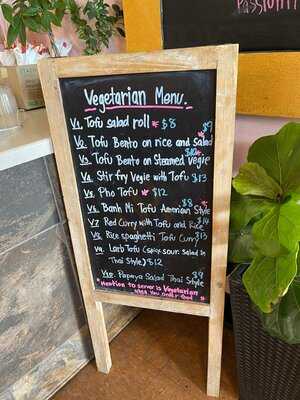 Passion
Tofu
Vegetarian Menu.
V1. Tofu salad roll * $8
V2. Tofu Bento on rice and salad $9
V3. Tofu Bento on Steamed Vegie $10
V4. Stir fry Vegie with Tofu $13
V5. Pho Tofu * $12
V6. Banh Mi Tofu American Style $8
V7. Red Curry with Tofu and Rice $14
V8. Rice spaghetti Tofu Curry $13
V9. Larb Tofu (spicy sour Salad in
Thai Style) $12
V10. Papaya Salad Thai Style $9
*Mention to server is Vegetarian
when You order food*